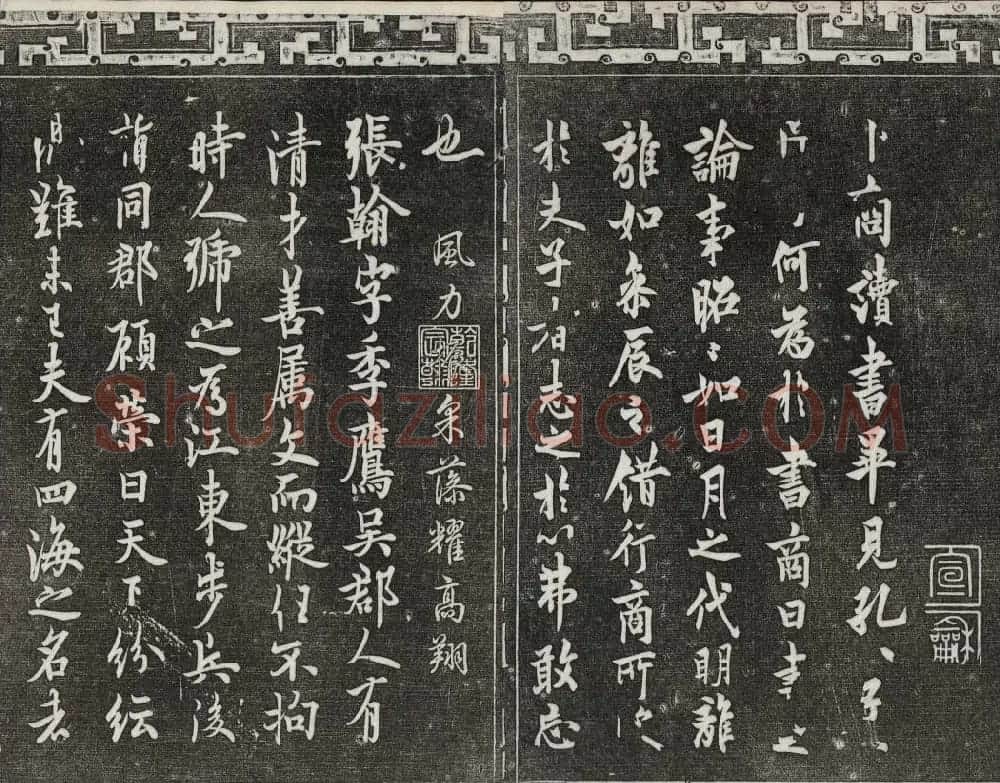 宣龢
卜商讀書畢見孔〻子〻
問〻何為於書商曰書之
論事昭〻如日月之代明離
離如參辰之錯行商所受
於夫子〻者志之於心弗敢忘
也
風力采藻耀高翔
乾隆宸翰
張翰字季鷹吳郡人有
清才善属文而縱任不拘
時人號之為江東步兵後
謂同郡顧榮曰天下紛紜
禍難未已夫有四海之名者
Shufaziliao.COM